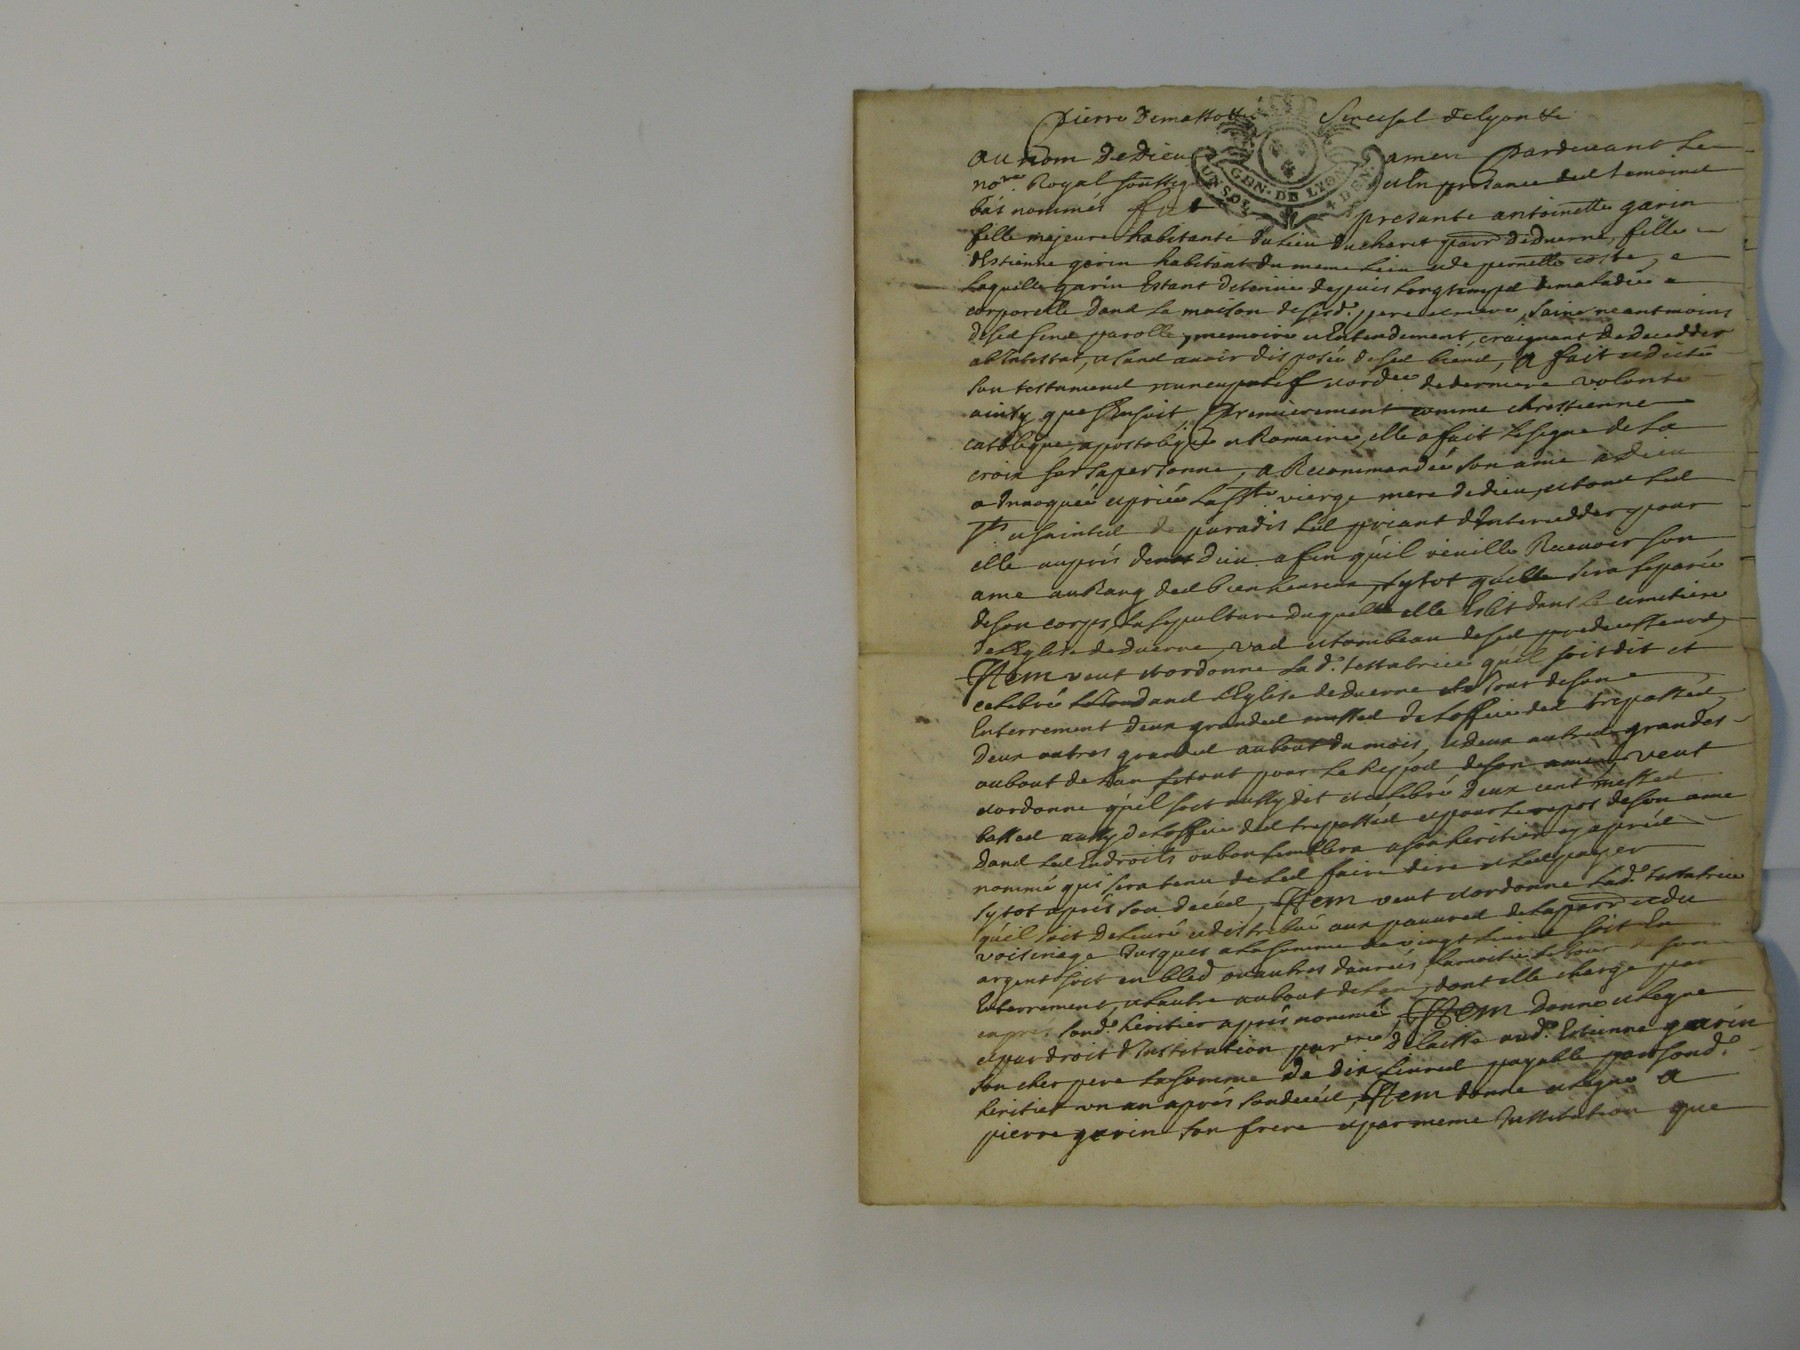 Pierre Demassotte Senesal de lyon &c
au nom de Dieu amen Pardevant le
nore. Royal soussigné en presance des temoins
bas nommés fut presante antoinette garin
fille majeure habitante du lieu du charet parr de duerne, fille
d'Estienne garin habitant du meme lieu et de pernette coste,
laquelle garin Estant detenue depuis longtemps de maladie
corporelle dans la maison de sesd. pere et mere, saine neantmoins
de ses sens parolle, memoire et Entendement, craignant de decedder
ab Intestat, et sans avoir disposée de ses biens, a fait et dicté
son testament nuncupatif et ordce de derniere volonté
ainsy que s'Ensuit, Premierement comme chrestienne
catolique, apostolique et Romaine, elle a fait le signe de la
croix sur sa personne, a Recommandée son ame a Dieu
a Invoquée et priée la Ste vierge mere de dieu, et tous les
Sts et saintes de paradis les priant d'Interceder pour
elle auprés de Dieu afin qu'il veuille Recevoir son
ame au Rang des bienheureux, sytot qu'elle sera separée
de son corps, la sepulture duquel elle Eslit dans le cimitiere
de l'Eglise de duerne, vas et tombeau de ses predecesseurs,
Item veut et ordonne lad. testatrice qu'il soit dit et
celebré dans l'Eglise de duerne le Jour de son
Enterrement deux grandes messes de l'office des trepassés,
deux autres grandes au bout du mois, et deux autres grandes
au bout de l'an le tout pour le Repos de son ame, veut
et ordonne qu'il soit aussy dit et celebré deux cent messes
basses aussy de l'office des trepassés et pour le repos de son ame
dans les Endroits ou bon semblera a son heritier cy aprés
nommé qui sera tenu de les faire dire et les payer
sytot aprés son decés, Item veut et ordonne lad. testatrice
qu'il soit delivré et distribué aux pauvres de la parr et du
voisinage Jusques a la somme de vingt livres soit En
argent soit en bled ou autres danrées, la moitié le Jour de son
Enterrement, et l'autre au bout de l'an, dont elle charge par
exprés sond. heritier aprés nommé, Item donne et legue
et par droit d'Institution parere delaisse aud. Estienne garin
son cher pere la somme de dix livres payable par sond.
heritier un an aprés son decés, Item donne et legue a
pierre garin son frere et par meme Institution que
GEN. DE LYON
UN SOL 4 DEN.